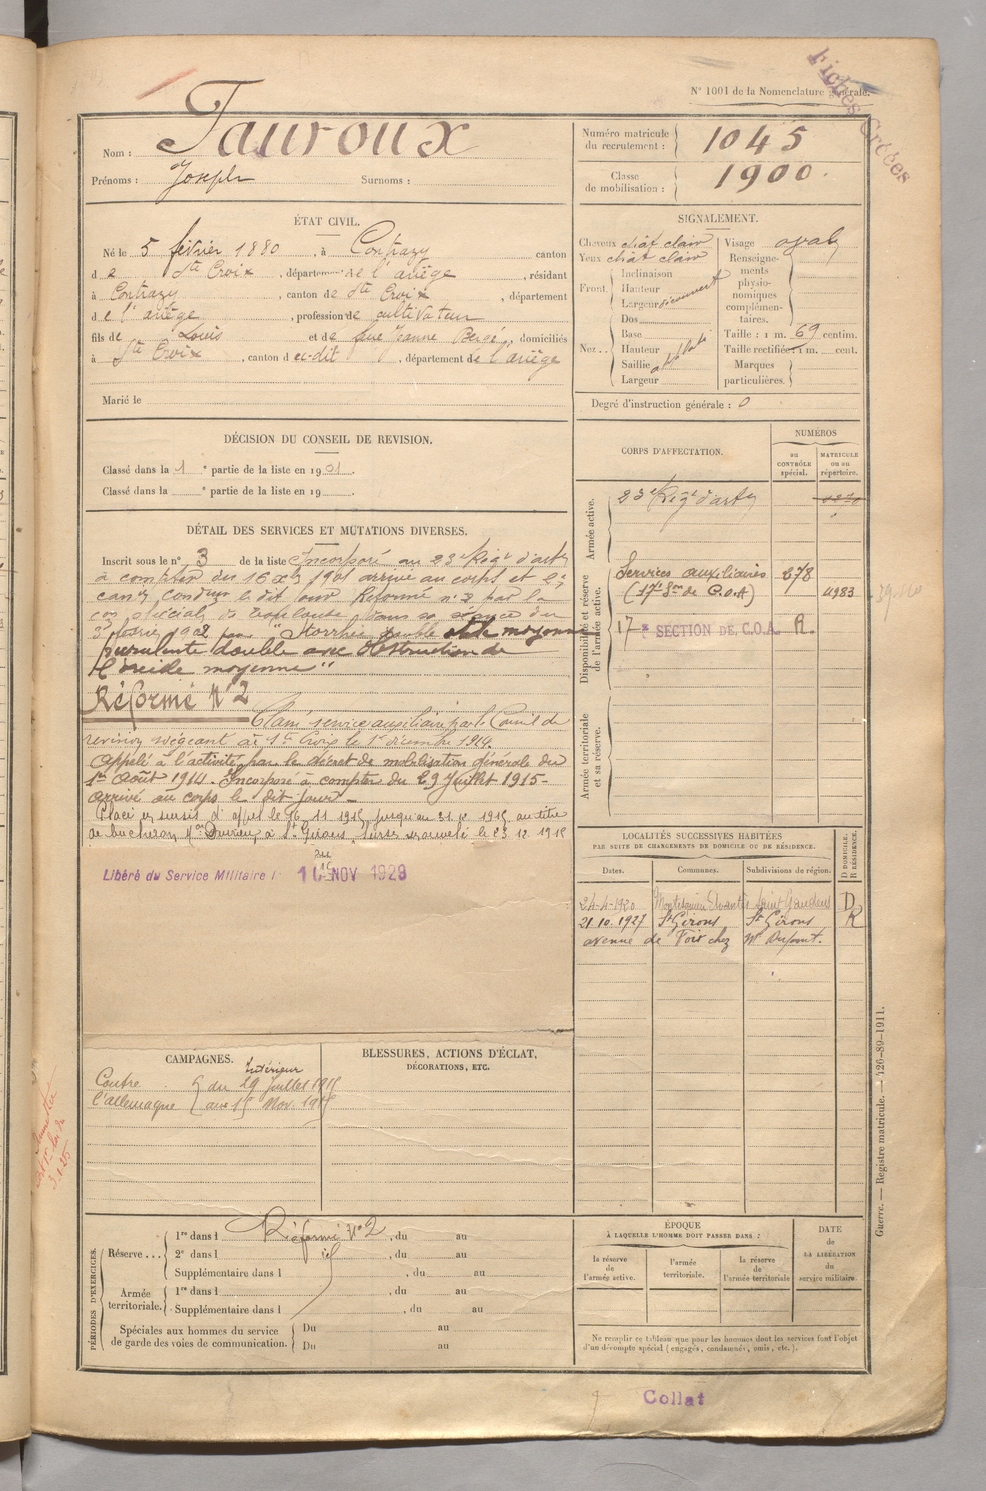 Fiches Créées
N° 1001 de la Nomenclature générale.
Nom : Tauroux
Prénoms : Joseph Surnoms :
Numéro matricule du recrutement : 1045
Classe de mobilisation : 1900
ÉTAT CIVIL.
Né le 5 février 1880, à Contrazy canton
de Ste Croix, département de l'ariège, résidant
à Contrazy, canton de Ste Croix, département
de l'ariège, profession de cultivateur
fils de Louis et de feue Jeanne Bergé, domiciliés
à Ste Croix, canton du dit, département de l'ariège
Marié le
SIGNALEMENT.
Cheveux chat clair
Yeux chat clair
Front
Inclinaison
Hauteur
Largeur découvert
Nez
Dos
Base
Hauteur
Saillie
Largeur
Visage oval
Renseignements physionomiques complémentaires.
Taille : 1 m. 69 centim.
Taille rectifiée : 1 m. cent.
Marques particulières.
Degré d'instruction générale : 0
DÉCISION DU CONSEIL DE REVISION.
Classé dans la 1e partie de la liste en 1901.
Classé dans la e partie de la liste en 19 .
DÉTAIL DES SERVICES ET MUTATIONS DIVERSES.
Inscrit sous le n° 3 de la liste Incorporé au 23e Régt d'arty
à compter du 16 9bre 1901 arrivé au corps et 2e
cann conducr le dit jour Réformé n° 2 par la
con spéciale de Toulouse dans sa séance du
février 1902 pour
purulente double avec obstruction de
l'oreille moyenne"
Réformé N° 2
Classé service auxiliaire par le Conseil de
revision siégeant à Ste Croix le 1er décembre 1914.
Appelé à l'activité par le décret de mobilisation générale du
1er Août 1914. Incorporé à compter du 29 Juillet 1915 -
arrivé au corps le dit jour -
Placé en sursis d'appel le 16 11 1915 jusqu'au 31 12 1915 au titre
de bucheron, à St Girons, sursis renouvelé le 23 12 1915
Libéré du Service Militaire le 10 NOV 1928
CORPS D'AFFECTATION.
NUMÉROS
au CONTRÔLE spécial.
MATRICULE ou au répertoire.
Armée active.
23e Régt d'arty
Disponibilité et réserve de l'armée active.
Services auxiliaires 278
(17e Son de C.O.A) 4983
17e SECTION DE C.O.A. R.
Armée territoriale et sa réserve.
LOCALITÉS SUCCESSIVES HABITÉES
PAR SUITE DE CHANGEMENTS DE DOMICILE OU DE RÉSIDENCE.
Dates. Communes. Subdivisions de région. D DOMICILE. R RÉSIDENCE.
24-4-1920 Montesquieu Avantès Saint Gaudens D
21.10.1927 St Girons St Girons R
avenue de Foix chez Mr Dupont.
CAMPAGNES.
Intérieur
Contre du 29 juillet 1915
l'allemagne au 15 Nov. 1915
BLESSURES, ACTIONS D'ÉCLAT, DÉCORATIONS, ETC.
PÉRIODES D'EXERCICES.
Réserve ... 1re dans l Réformé N° 2, du au
2e dans l, du au
Supplémentaire dans l, du au
Armée territoriale. 1re dans l, du au
Supplémentaire dans l, du au
Spéciales aux hommes du service de garde des voies de communication. Du au
Du au
ÉPOQUE
À LAQUELLE L'HOMME DOIT PASSER DANS :
la réserve de l'armée active.
l'armée territoriale.
la réserve de l'armée territoriale
DATE de LA LIBÉRATION du service militaire
Ne remplir ce tableau que pour les hommes dont les services font l'objet
d'un décompte spécial (engagés, condamnés, omis, etc.).
Guerre. — Registre matricule. — 426-89-1911.
Collat